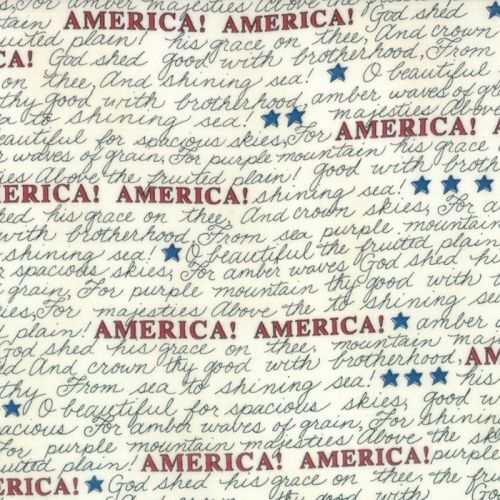 For amber majesties Above the
tain AMERICA! AMERICA! God shed
fruited plain! his grace on thee, And crown
CA! God shed good with brotherhood, From
on thee, And shining sea! O beautiful
thy good with brotherhood, amber waves of
a to shining sea! majesties Above
eautiful for spacious skies, For AMERICA! A
r waves of grain, For purple mountain his grace
es Above the fruited plain! good with brot
MERICA! AMERICA! shining sea!
hed his grace on thee, And crown skies, For a
with brotherhood From sea purple mountain
shining sea! O beautiful the fruited plain
r spacious skies, For amber waves God shed
grain, For purple mountain thy good with
ies, For majesties Above the to shining
d plain! AMERICA! AMERICA! amber
God shed his grace on thee, mountain maj
d And crown thy good with brotherhood, AM
thy From sea to shining sea! his
O beautiful for spacious skies, good
acious For amber waves of grain, For shining
or purple mountain majesties Above the
uited plain! AMERICA! AMERICA! purple
ERICA! God shed his grace on thee,
thee, And crown thy good with